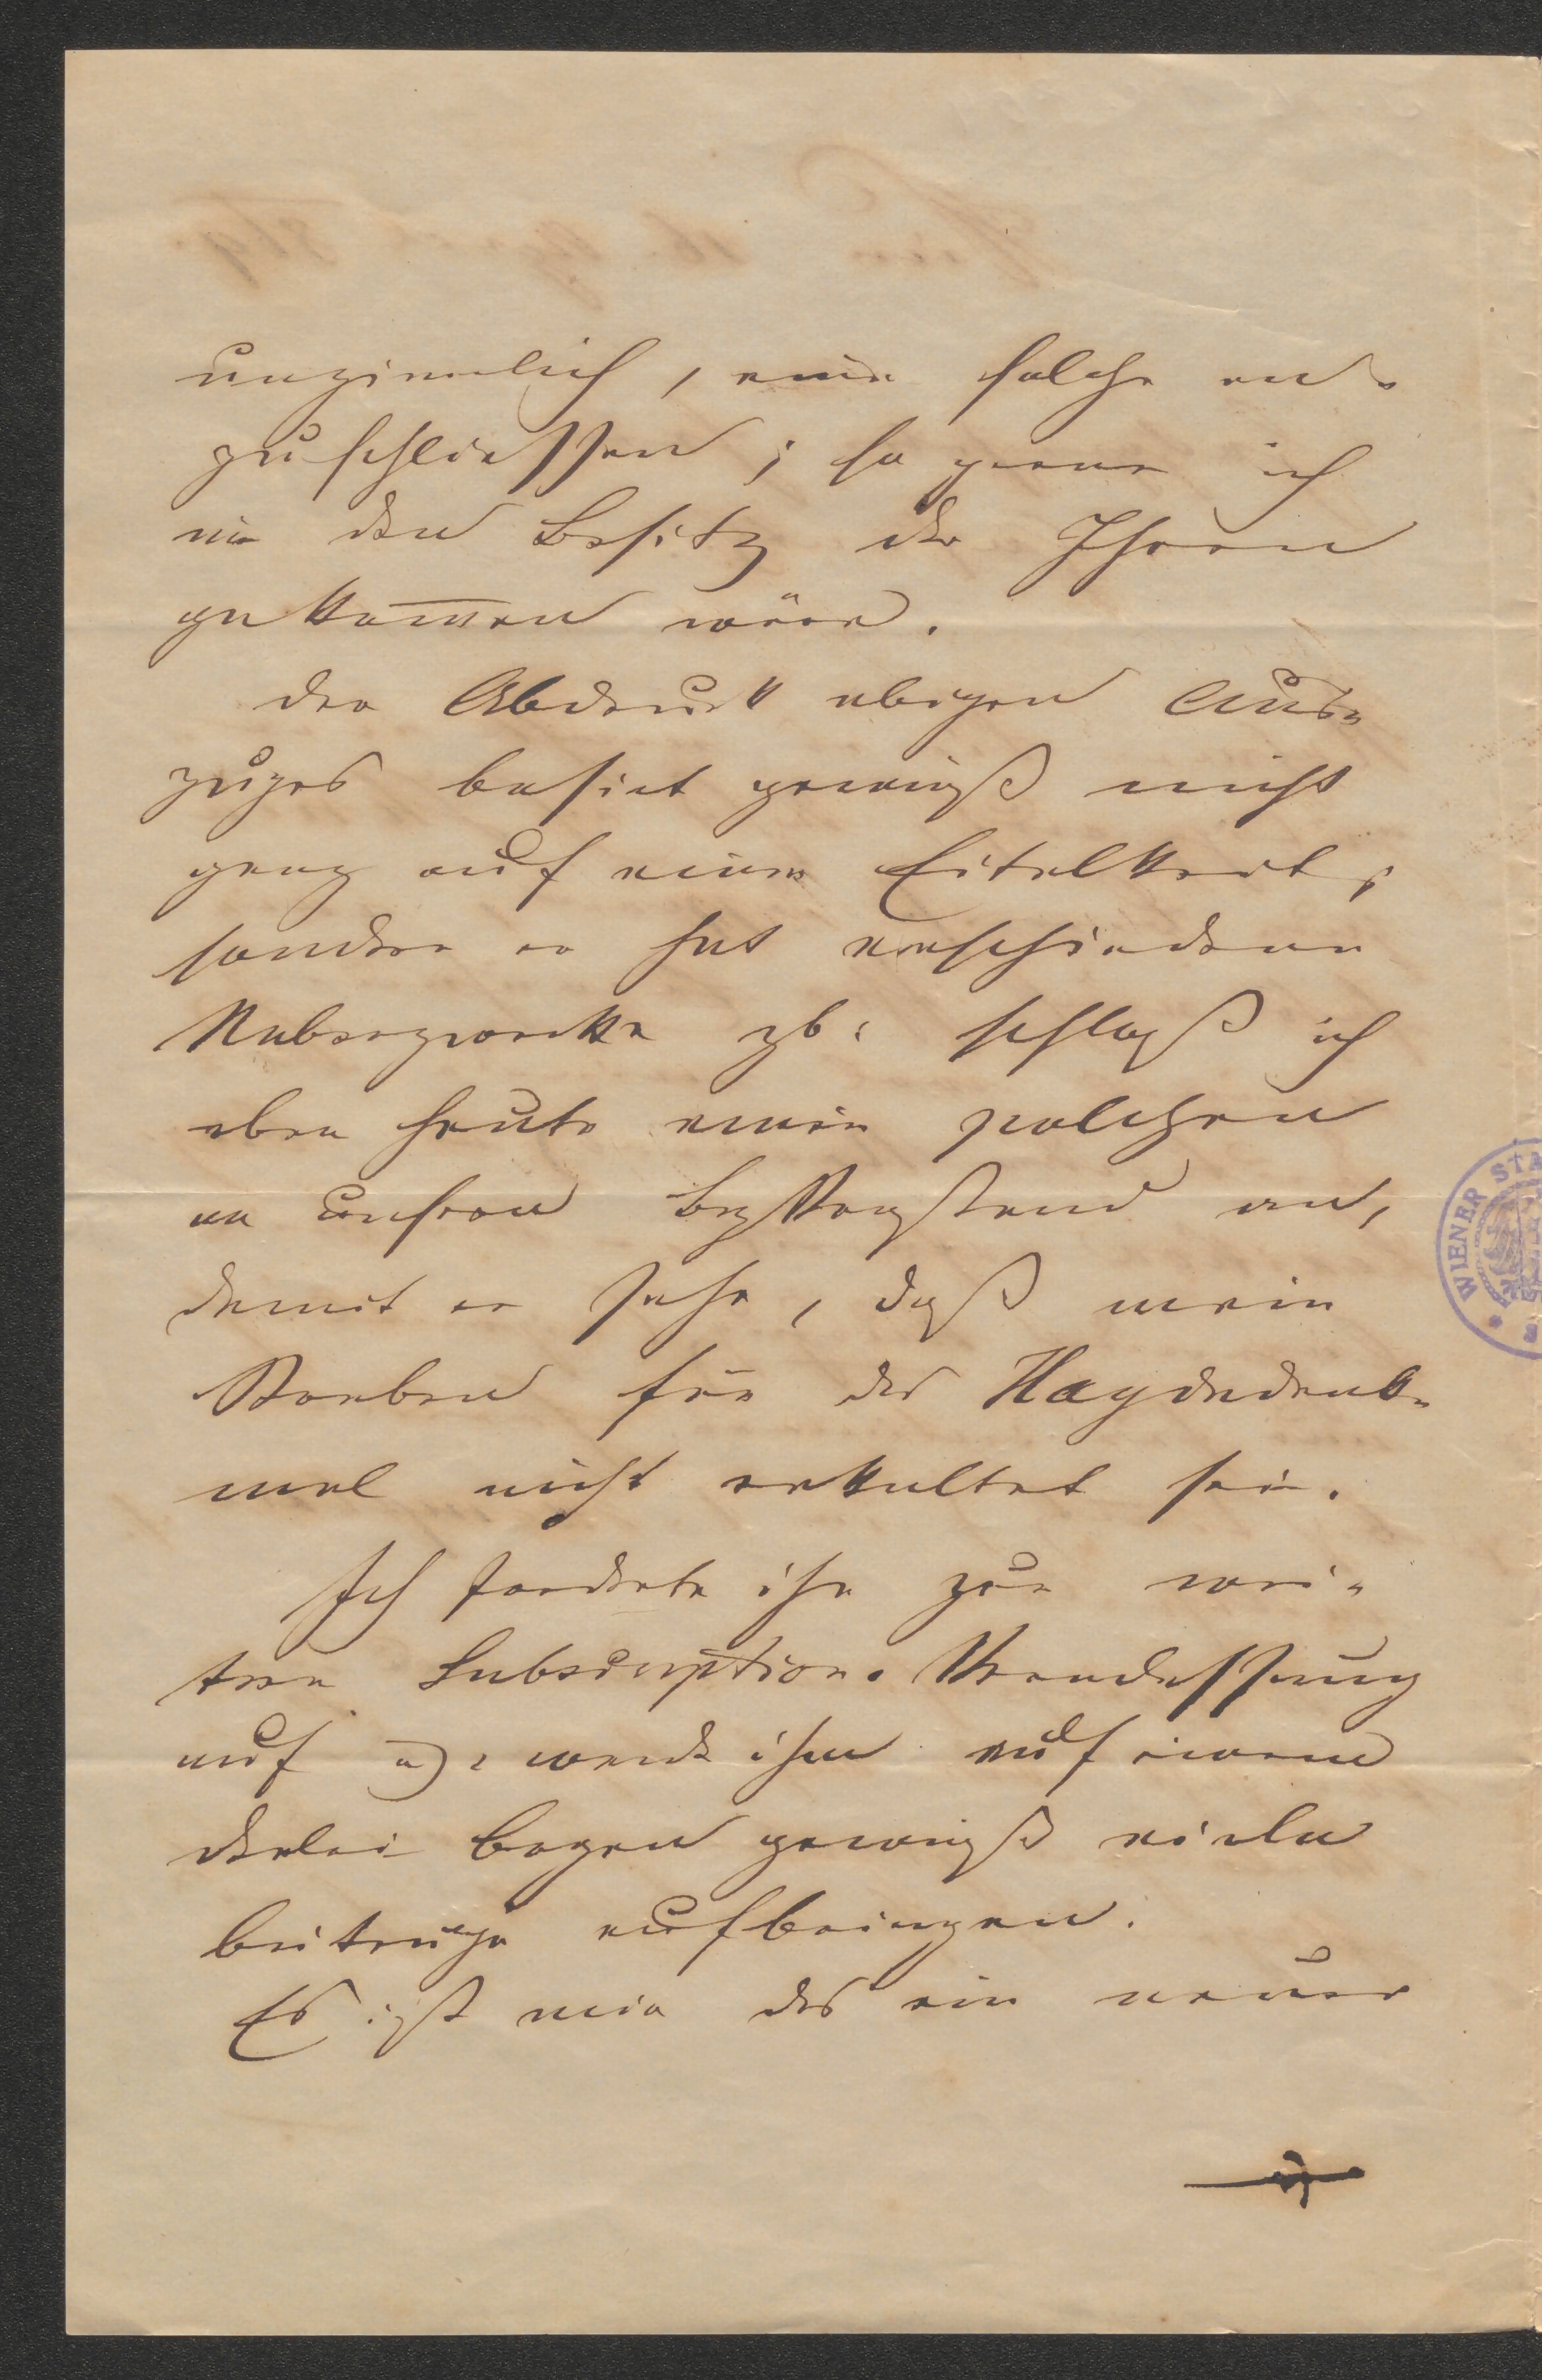 unziemlich, eine solche an-
zuschliessen; so gerne ich
in den Besitz der Ihren
gekom̅en wäre.
Der Abdruck obigen Aus-
zuges basirt gewiß nicht
ganz auf einer Eitelkeit,
sondern er hat verschiedene
Nebenzwecke zb: schloß ich
eben heute einen solchen
an unseren an,
damit er sehe, daß mein
Streben für das Haydndenk-
mal nicht erkaltet sei.
Ich forderte ihn zur wei-
teren Subscriptions
auf u. werde ihm auf einem
derlei Bogen gewiß viele
Beiträge aufbringen.
Es ist mir das ein neuer
WIENER STA